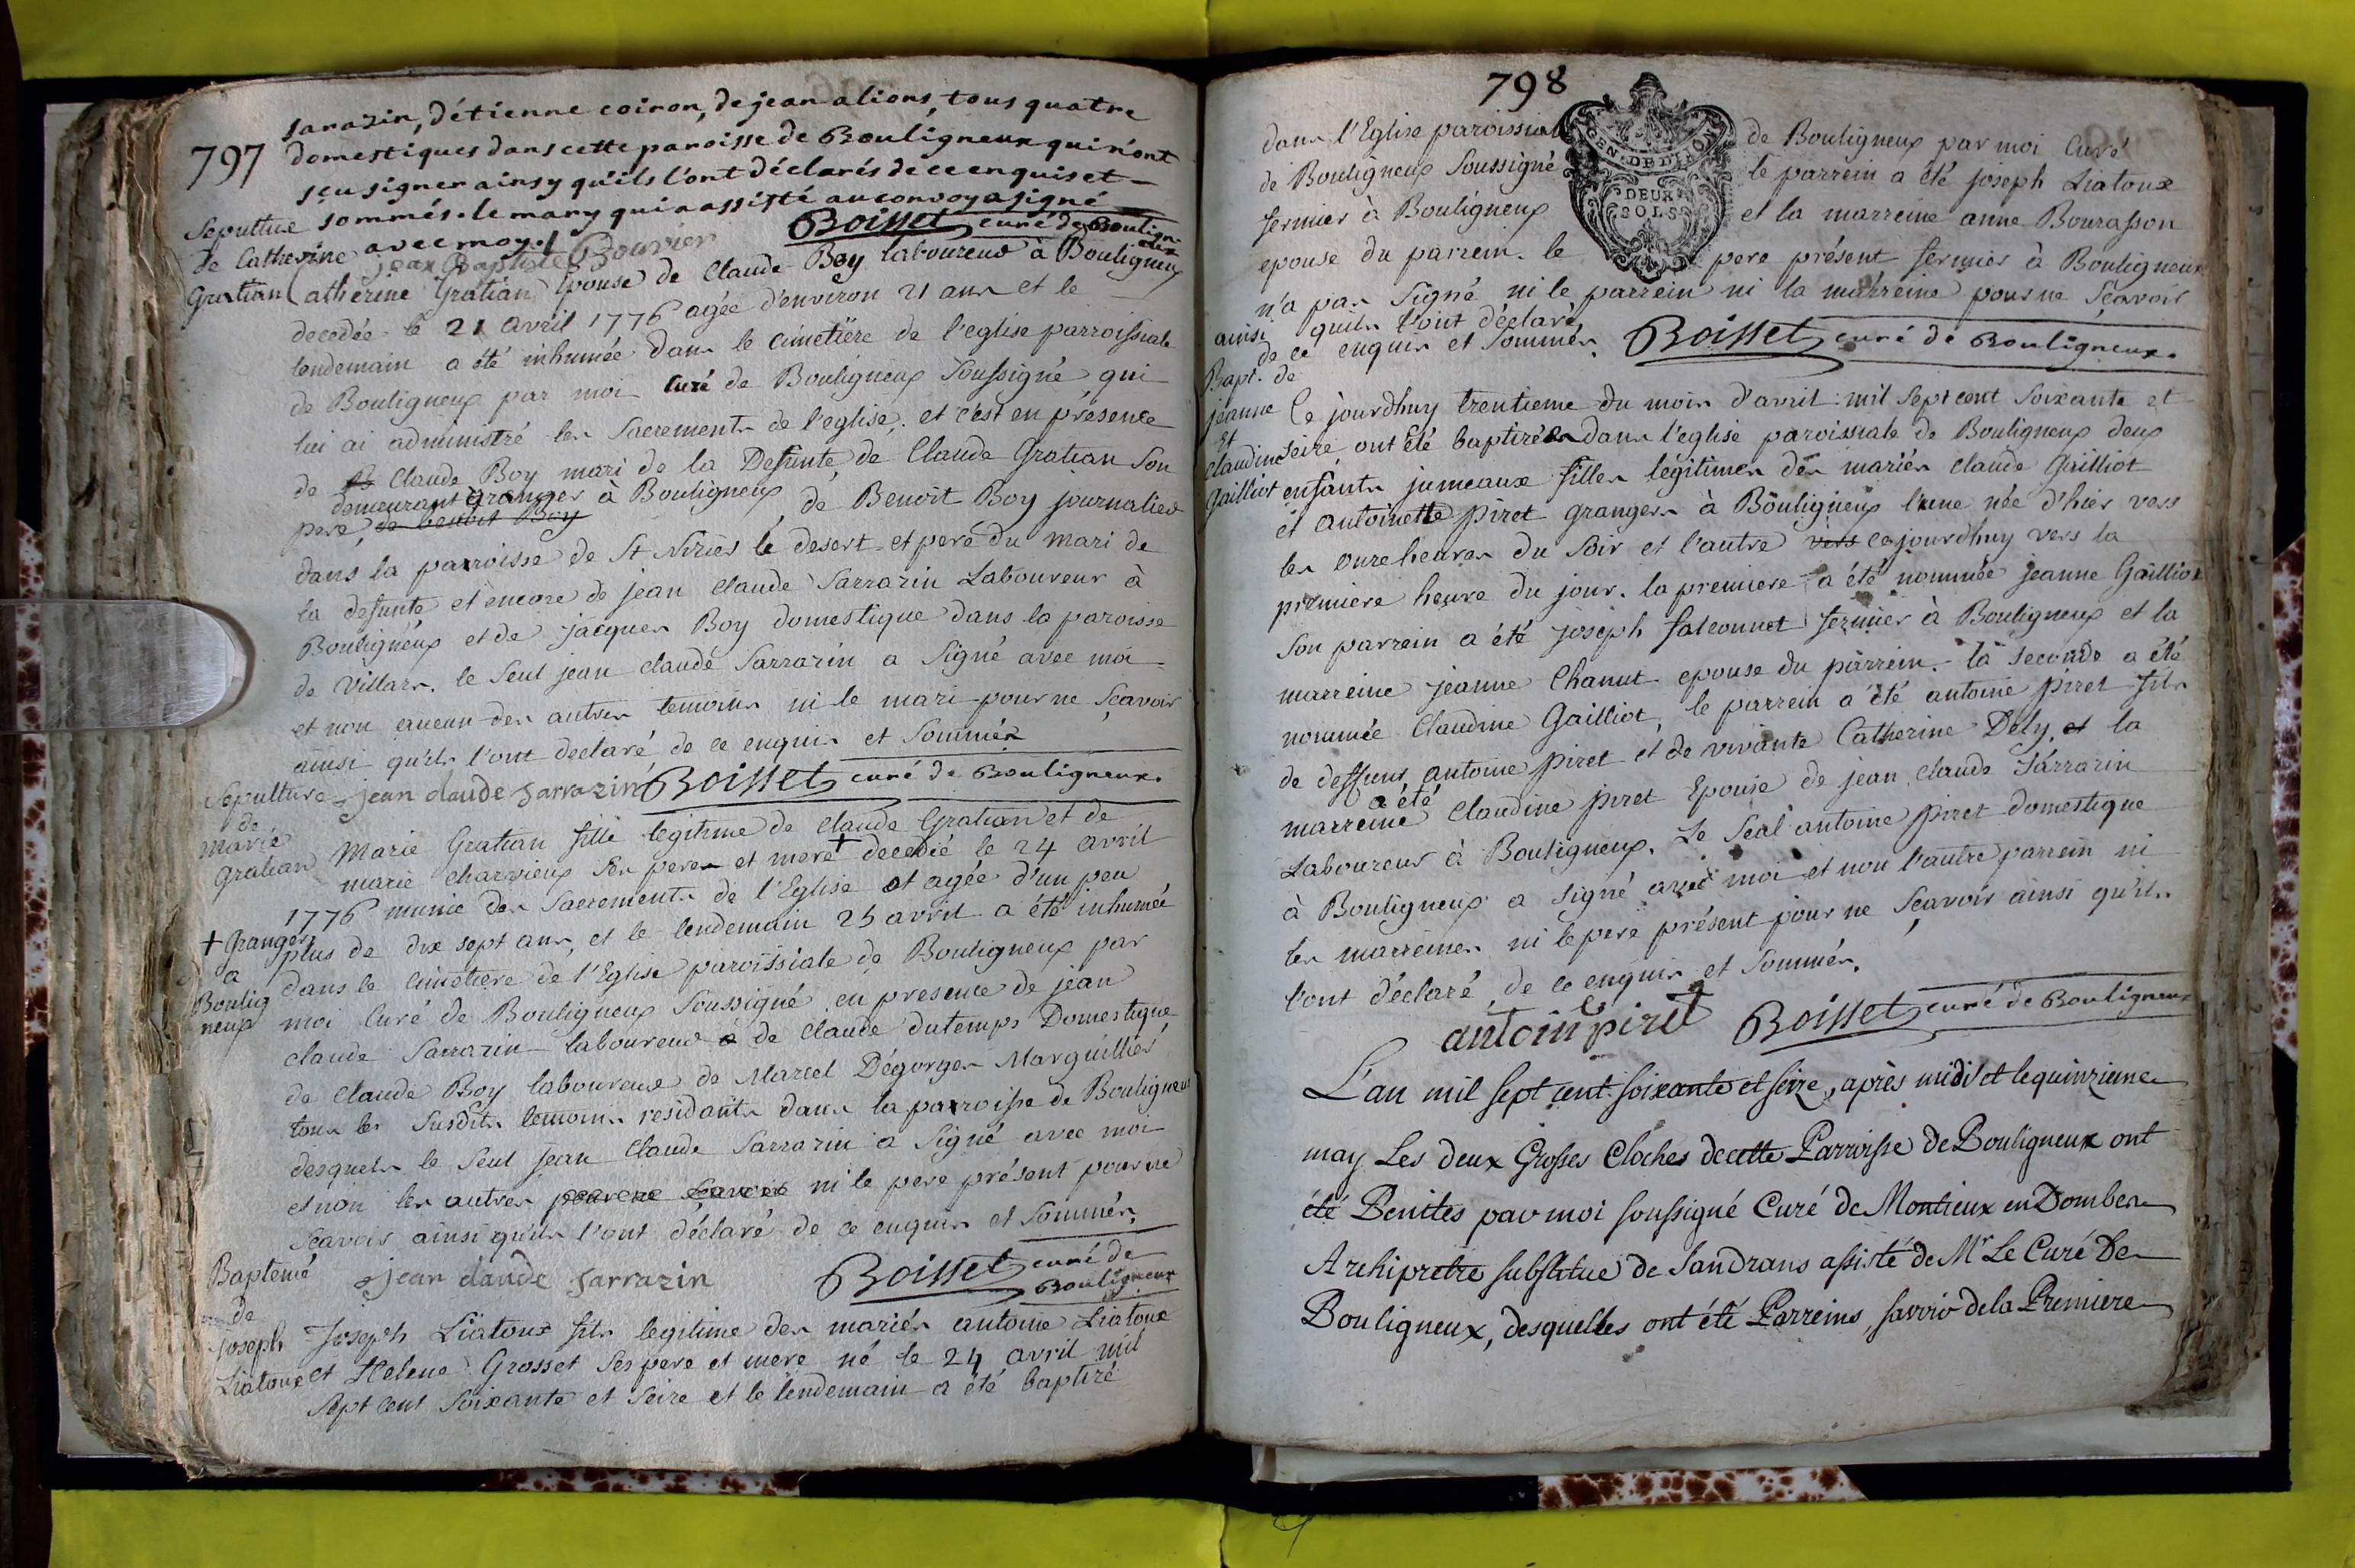 797
sarazin, d'étienne coiron, de jean alions, tous quatre
domestiques dans cette paroisse de Bouligneux qui n'ont
sçu signer ainsy qu'ils l'ont déclarés de ce enquis et
sommés. le mary qui a assisté au convoy a signé
avec moy. Jean Baptiste Bouvier Boisset curé de Bouligneux
Sepulture
de Catherine
Gratian
Catherine Gratian Epouse de Claude Boy laboureur à Bouligneux
decedée le 21 avril 1776 agée d'environ 21 ans et le
lendemain a été inhumée dans le cimetière de l'eglise parroissiale
de Bouligneux par moi Curé de Bouligneux Soussigné qui
lui ai administré les Sacrements de l'eglise, et c'est en présence
de Claude Boy mari de la Defunte, de Claude Gratian Son
demeurant
pere, de benoit Boy granger à Bouligneux, de Benoit Boy journalier
dans la parroisse de St Niziès le desert et pere du mari de
la defunte et encore de jean claude Sarrazin Laboureur à
Bouligneux et de jacques Boy domestique dans la paroisse
de Villars. le Seul jean claude Sarrazin a Signé avec moi
et non aucun des autres temoins ni le mari pour ne Sçavoir
ainsi qu'ils l'ont declaré de ce enquis et Sommés
jean claude sarrazin Boisset curé de Bouligneux.
Sepulture
de
marie
gratian
Marie Gratian fille legitime de claude Gratian et de
marie charvieux Ses peres et mere + decedée le 24 avril
1776 munie des Sacrements de l'Eglise et agée d'un peu
plus de dix sept ans, et le lendemain 25 avril a été inhumée
+ Granger
a
Boulig
neux
dans le Cimetiere de l'Eglise paroissiale de Bouligneux par
moi Curé de Bouligneux Soussigné en presence de jean
claude Sarrazin laboureur de Claude dutemps Domestique
de Claude Boy laboureur de Marcel Dégorges Marguillier
tous les Susdits temoins residants dans la parroisse de Bouligneux
desquels le Seul jean Claude Sarrazin a Signé avec moi
et non les autres pour ne sçavoir ni le pere présent pour ne
Sçavoir ainsi qu'ils l'ont déclaré de ce enquis et Sommés.
jean claude sarrazin Boisset curé de
Bouligneux
Baptême
de
joseph
Liatoux
Joseph Liatoux fils legitime des mariés antoine Liatoux
et Helene Grosset Ses pere et mere né le 24 avril mil
Sept cent Soixante et Seize et le lendemain a été baptizé
798
GEN. DE DIJON
DEUX
SOLS
dans l'Eglise paroissiale de Bouligneux par moi Curé
de Bouligneux Soussigné le parrein a été joseph Liatoux
fermier à Bouligneux et la marreine anne Bourasson
epouse du parrein. le pere présent fermier à Bouligneux
n'a pas Signé ni le parrein ni la marreine pour ne Sçavoir
ainsi qu'ils l'ont déclaré
de ce enquis et Sommés. Boisset curé de Bouligneux.
Bapt. de
jeanne
et
claudine
Gailliot
Ce jourdhuy trentieme du mois d'avril mil Sept cent Soixante et
Seize, ont été baptizées dans l'eglise paroissiale de Bouligneux deux
enfants jumeaux filles légitimes des mariés claude Gailliot
et antoinette Piret grangers à Bouligneux l'une née d'hier vers
les onze heures du Soir et l'autre vers cejourdhuy vers la
premiere heure du jour. la premiere a été nommée jeanne Gailliot
Son parrein a été joseph falconnet fermier à Bouligneux et la
marreine jeanne Chanut epouse du parrein. la seconde a été
nommée Claudine Gailliot, le parrein a été antoine piret fils
de deffunt antoine piret et de vivante Catherine Dely, et la
a été
marreine Claudine piret Epouse de jean claude Sarrazin
Laboureur à Bouligneux. Le Seul antoine piret domestique
à Bouligneux a signé avec moi et non l'autre parrein ni
les marreines ni le pere présent pour ne Sçavoir ainsi qu'ils
l'ont déclaré de ce enquis et Sommés.
antoin piret Boisset curé de Bouligneux
L'an mil sept cent soixante et seize, après midi et le quinzieme
may Les deux Grosses Cloches de cette Parroisse de Bouligneux ont
été Benites par moi soussigné Curé de Montieux en Dombes
Archiprétre substitué de Sandrans assisté de Mr Le Curé De
Bouligneux, desquelles ont été Parreins, savoir de la Premiere